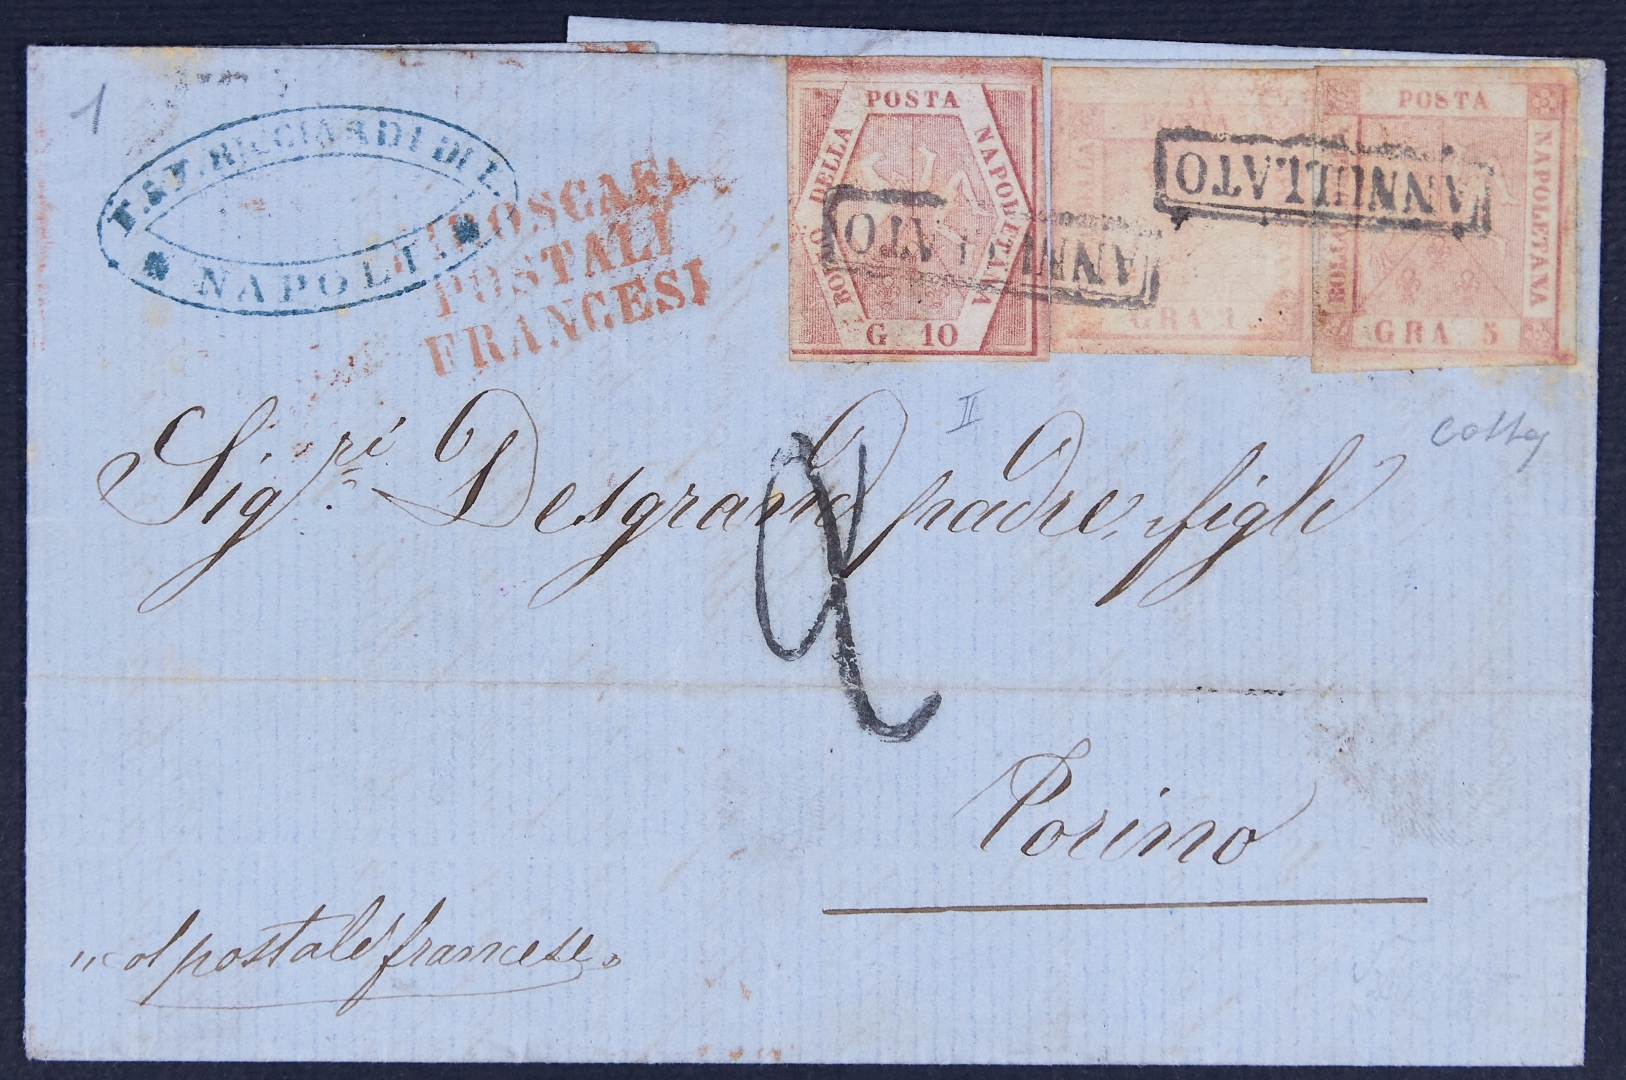 1
F. & F. RICCIARDI DI L.
NAPOLI
PIROSCAFI
POSTALI
FRANCESI
POSTA
DELLA
NAPOLETANA
REGNO
G 10
ANNULLATO
POSTA
GRA 1
ANNULLATO
POSTA
NAPOLETANA
GRA 5
II
Sigri. Desgrand padre, figli
2
Torino
"col postale francese"